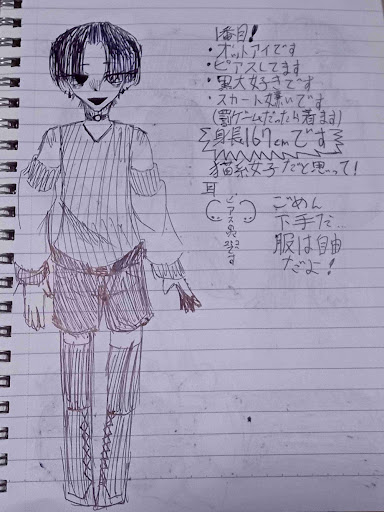 1番目!
・オットアイです
・ピアスしてます
・黒大好きです
・スカート嫌いです
(罰ゲームだったら着ます)
身長167cmです
猫系女子だと思って!
耳
ピアスの穴
ごめん
下手だ…
服は自由
だよ!